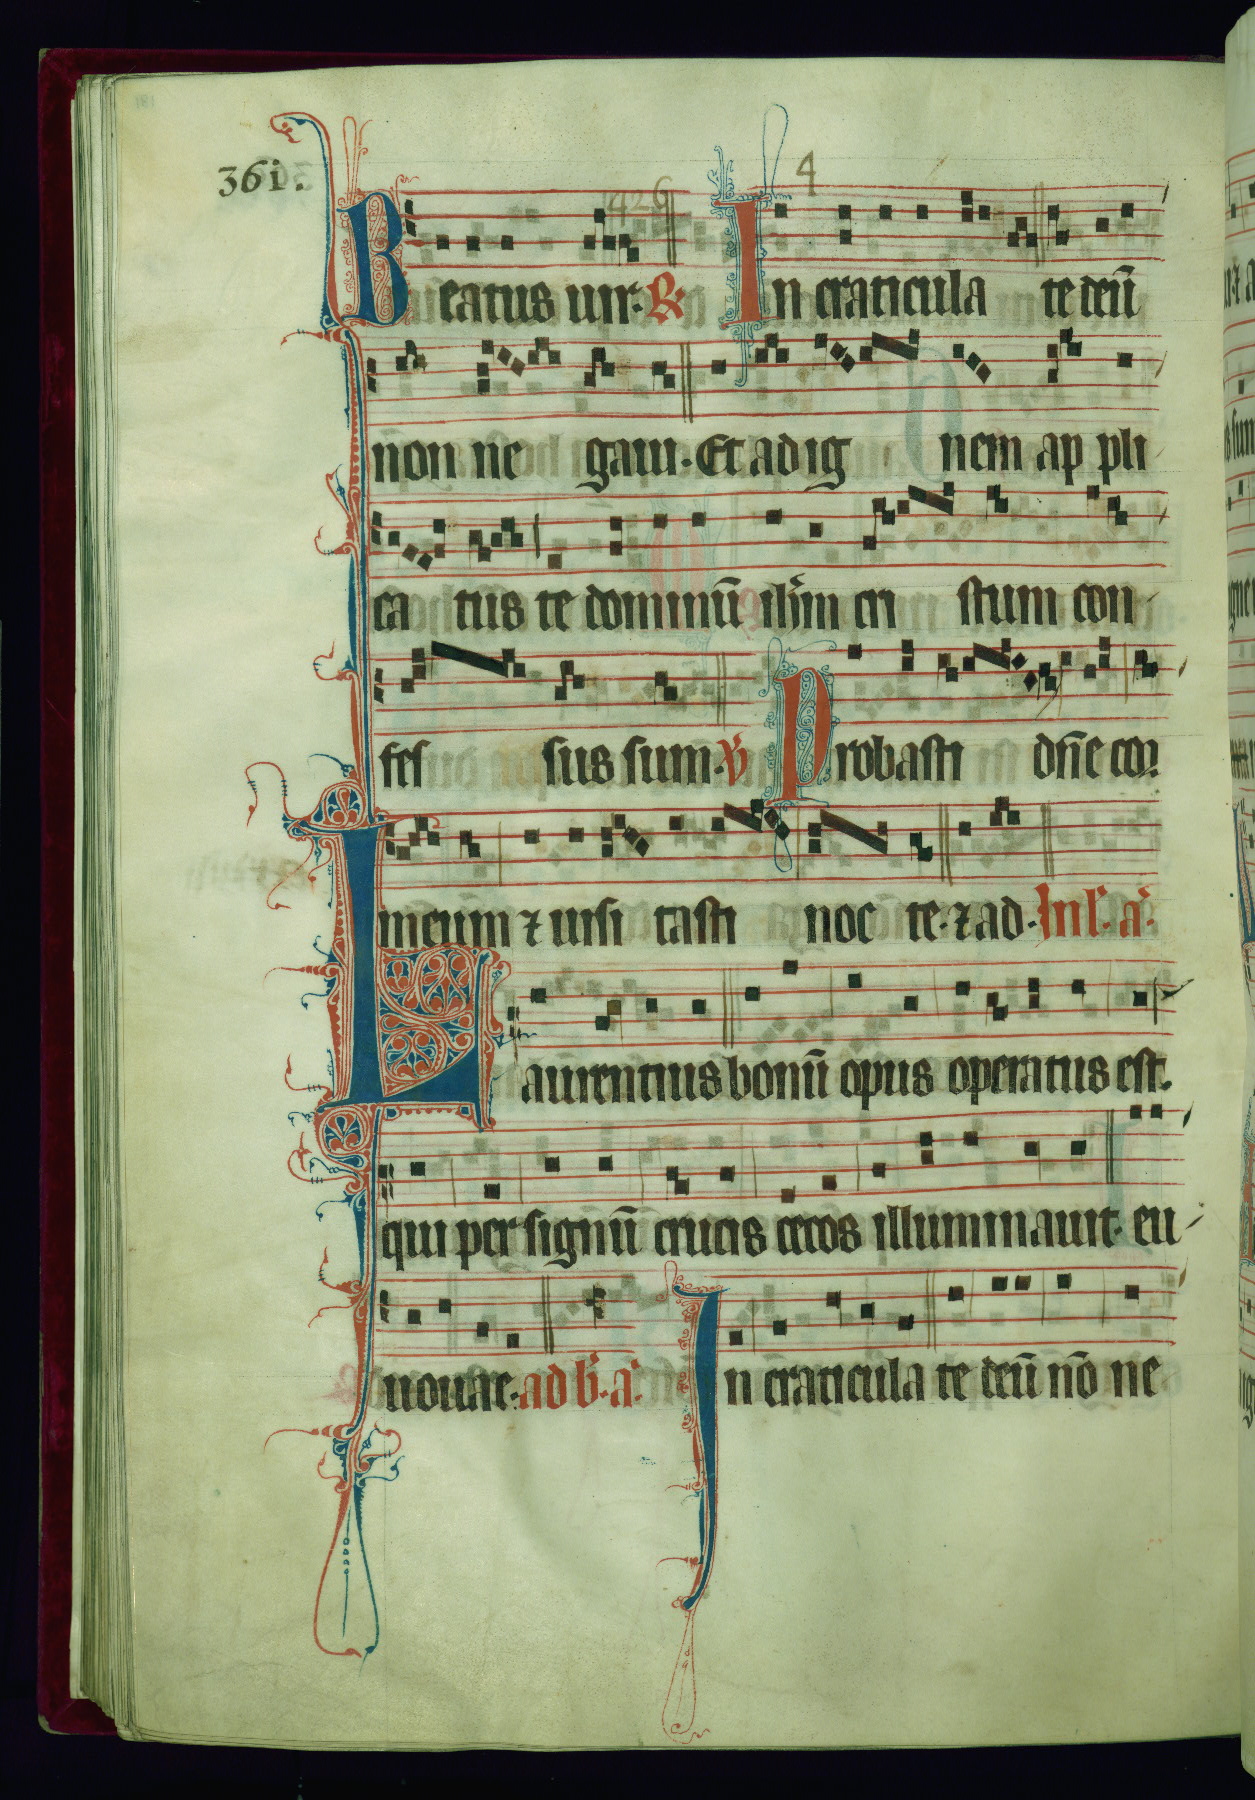 361.
4
426
Beatus uir. R In craticula te deū
non ne gaui. Et ad ig nem ap pli
ca tus te dominū ih̄m cri stum con
fes sus sum. V Probasti dn̄e cor
meum ⁊ uisi tasti noc te. ⁊ ad. In l'. a'.
Laurentius bonū opus operatus est.
qui per signū crucis cecos illuminauit. eu
uouae. ad b'. a'. In craticula te deū nō ne